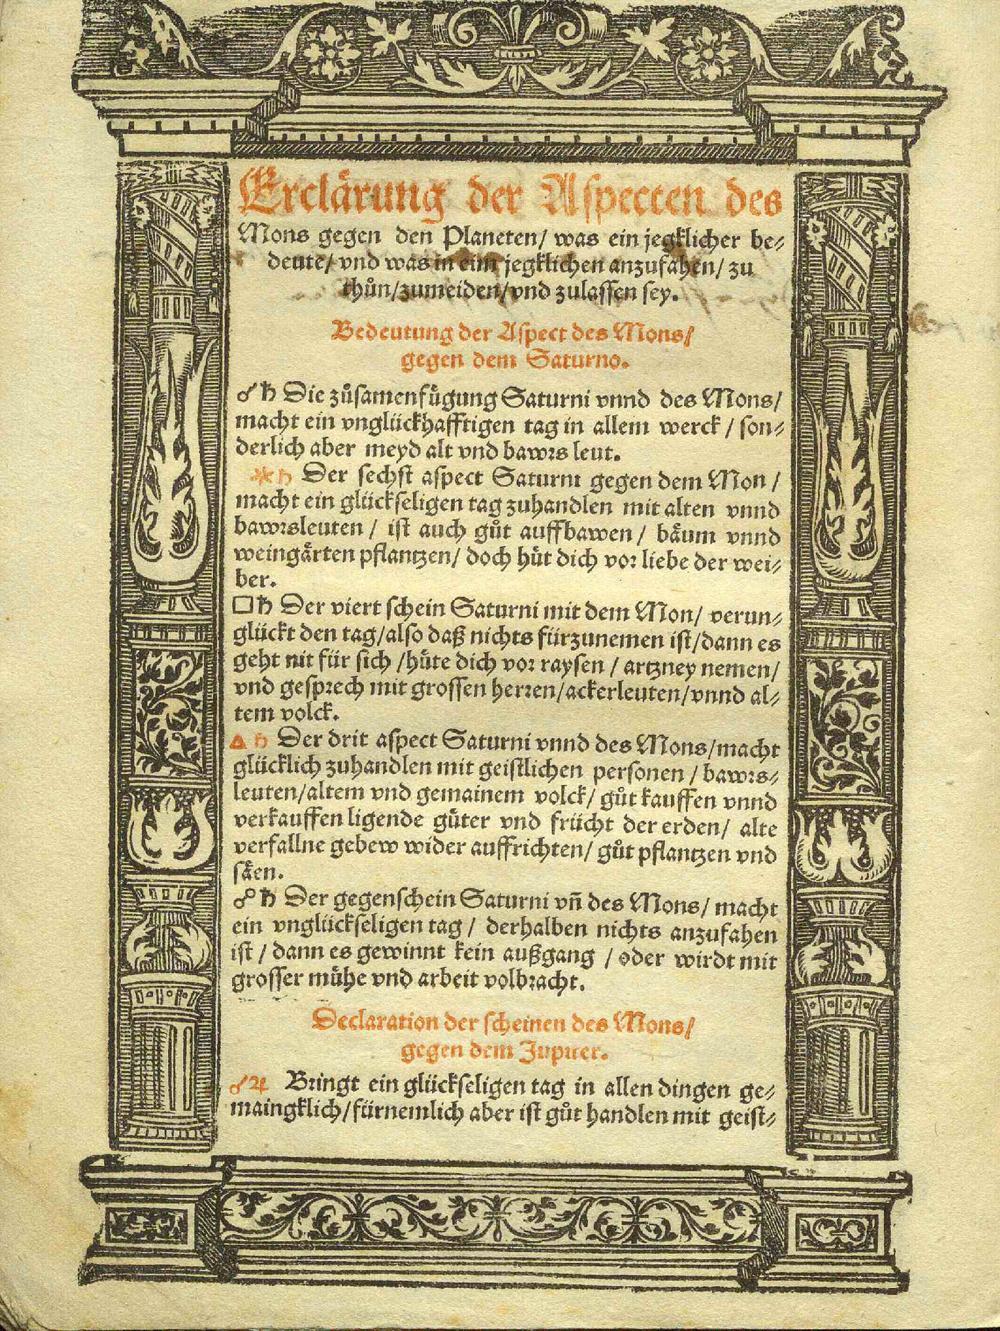 Erclärung der Aspecten des
Mons gegen den Planeten/ was ein jegklicher be⸗
deute/ vnd was in eim jegklichen anzufahen/ zu
thůn/zumeiden/vnd zulassen sey.
Bedeutung der Aspect des Mons/
gegen dem Saturno.
☌ ♄ Die zůsamenfůgung Saturni vnnd des Mons/
macht ein vnglückhafftigen tag in allem werck / son⸗
derlich aber meyd alt vnd bawrs leut.
⚹ ♄ Der sechst aspect Saturni gegen dem Mon /
macht ein glückseligen tag zuhandlen mit alten vnnd
bawrsleuten / ist auch gůt auffbawen / bäum vnnd
weingärten pflantzen/ doch hüt dich vor liebe der wei⸗
ber.
□ ♄ Der viert schein Saturni mit dem Mon/ verun⸗
glückt den tag/also daß nichts fürzunemen ist/dann es
geht nit für sich /hüte dich vor raysen / artzney nemen/
vnd gesprech mit grossen herren/ackerleuten/vnnd al⸗
tem volck.
△ ♄ Der drit aspect Saturni vnnd des Mons/macht
glücklich zuhandlen mit geistlichen personen / bawrs⸗
leuten/altem vnd gemainem volck/ gůt kauffen vnnd
verkauffen ligende gůter vnd frücht der erden/ alte
verfallne gebew wider auffrichten/ gůt pflantzen vnd
säen.
☍ ♄ Der gegenschein Saturni vñ des Mons/ macht
ein vnglückseligen tag / derhalben nichts anzufahen
ist / dann es gewinnt kein außgang / oder wirdt mit
grosser mühe vnd arbeit volbracht.
Declaration der scheinen des Mons/
gegen dem Jupiter.
☌ ♃ Bringt ein glückseligen tag in allen dingen ge⸗
maingklich/fürnemlich aber ist gůt handlen mit geist⸗